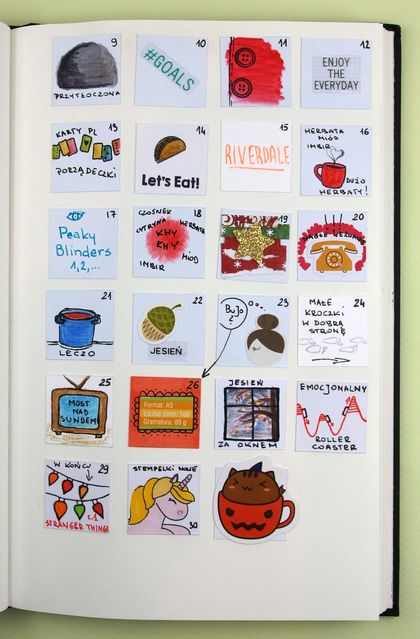 9
PRZYTŁOCZONA
10
#GOALS
11
12
ENJOY
THE
EVERYDAY
13
KARTY PL
PORZĄDECZKI
14
Let's Eat!
15
RIVERDALE
16
HERBATA
MIÓD
IMBIR
DUŻO
HERBATY!
17
Peaky
Blinders
1,2,...
18
CZOSNEK
CYTRYNA HERBATA
KHY
KHY
IMBIR MIÓD
19
20
21
LECZO
22
JESIEŃ
BuJo
?
23
24
MAŁE
KROCZKI
W DOBRĄ
STRONĘ
25
MOST
NAD
SUNDEM
26
Format: A5
Liczba stron: 160
Gramatura: 80 g
JESIEŃ
ZA OKNEM
EMOCJONALNY
ROLLER
COASTER
29
W KOŃCU
s.1
STRANGER THINGS
STEMPELKI NOWE
30